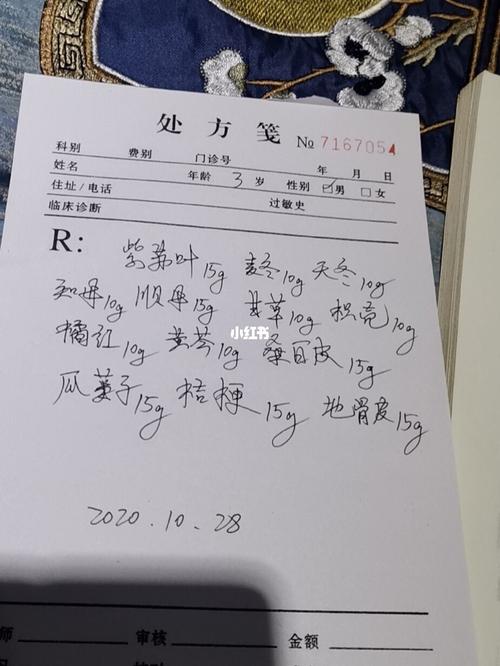 处方笺 No 7167054
科别 费别 门诊号 年 月 日
姓名 年龄 3 岁 性别 ☑男 □女
住址/电话
临床诊断 过敏史
R:
紫苏叶15g 麦冬10g 天冬10g
知母10g 川贝母15g 甘草10g 枳壳10g
橘红10g 黄芩10g 桑白皮15g
瓜蒌子15g 桔梗15g 地骨皮15g
小红书
2020.10.28
师 审核 金额